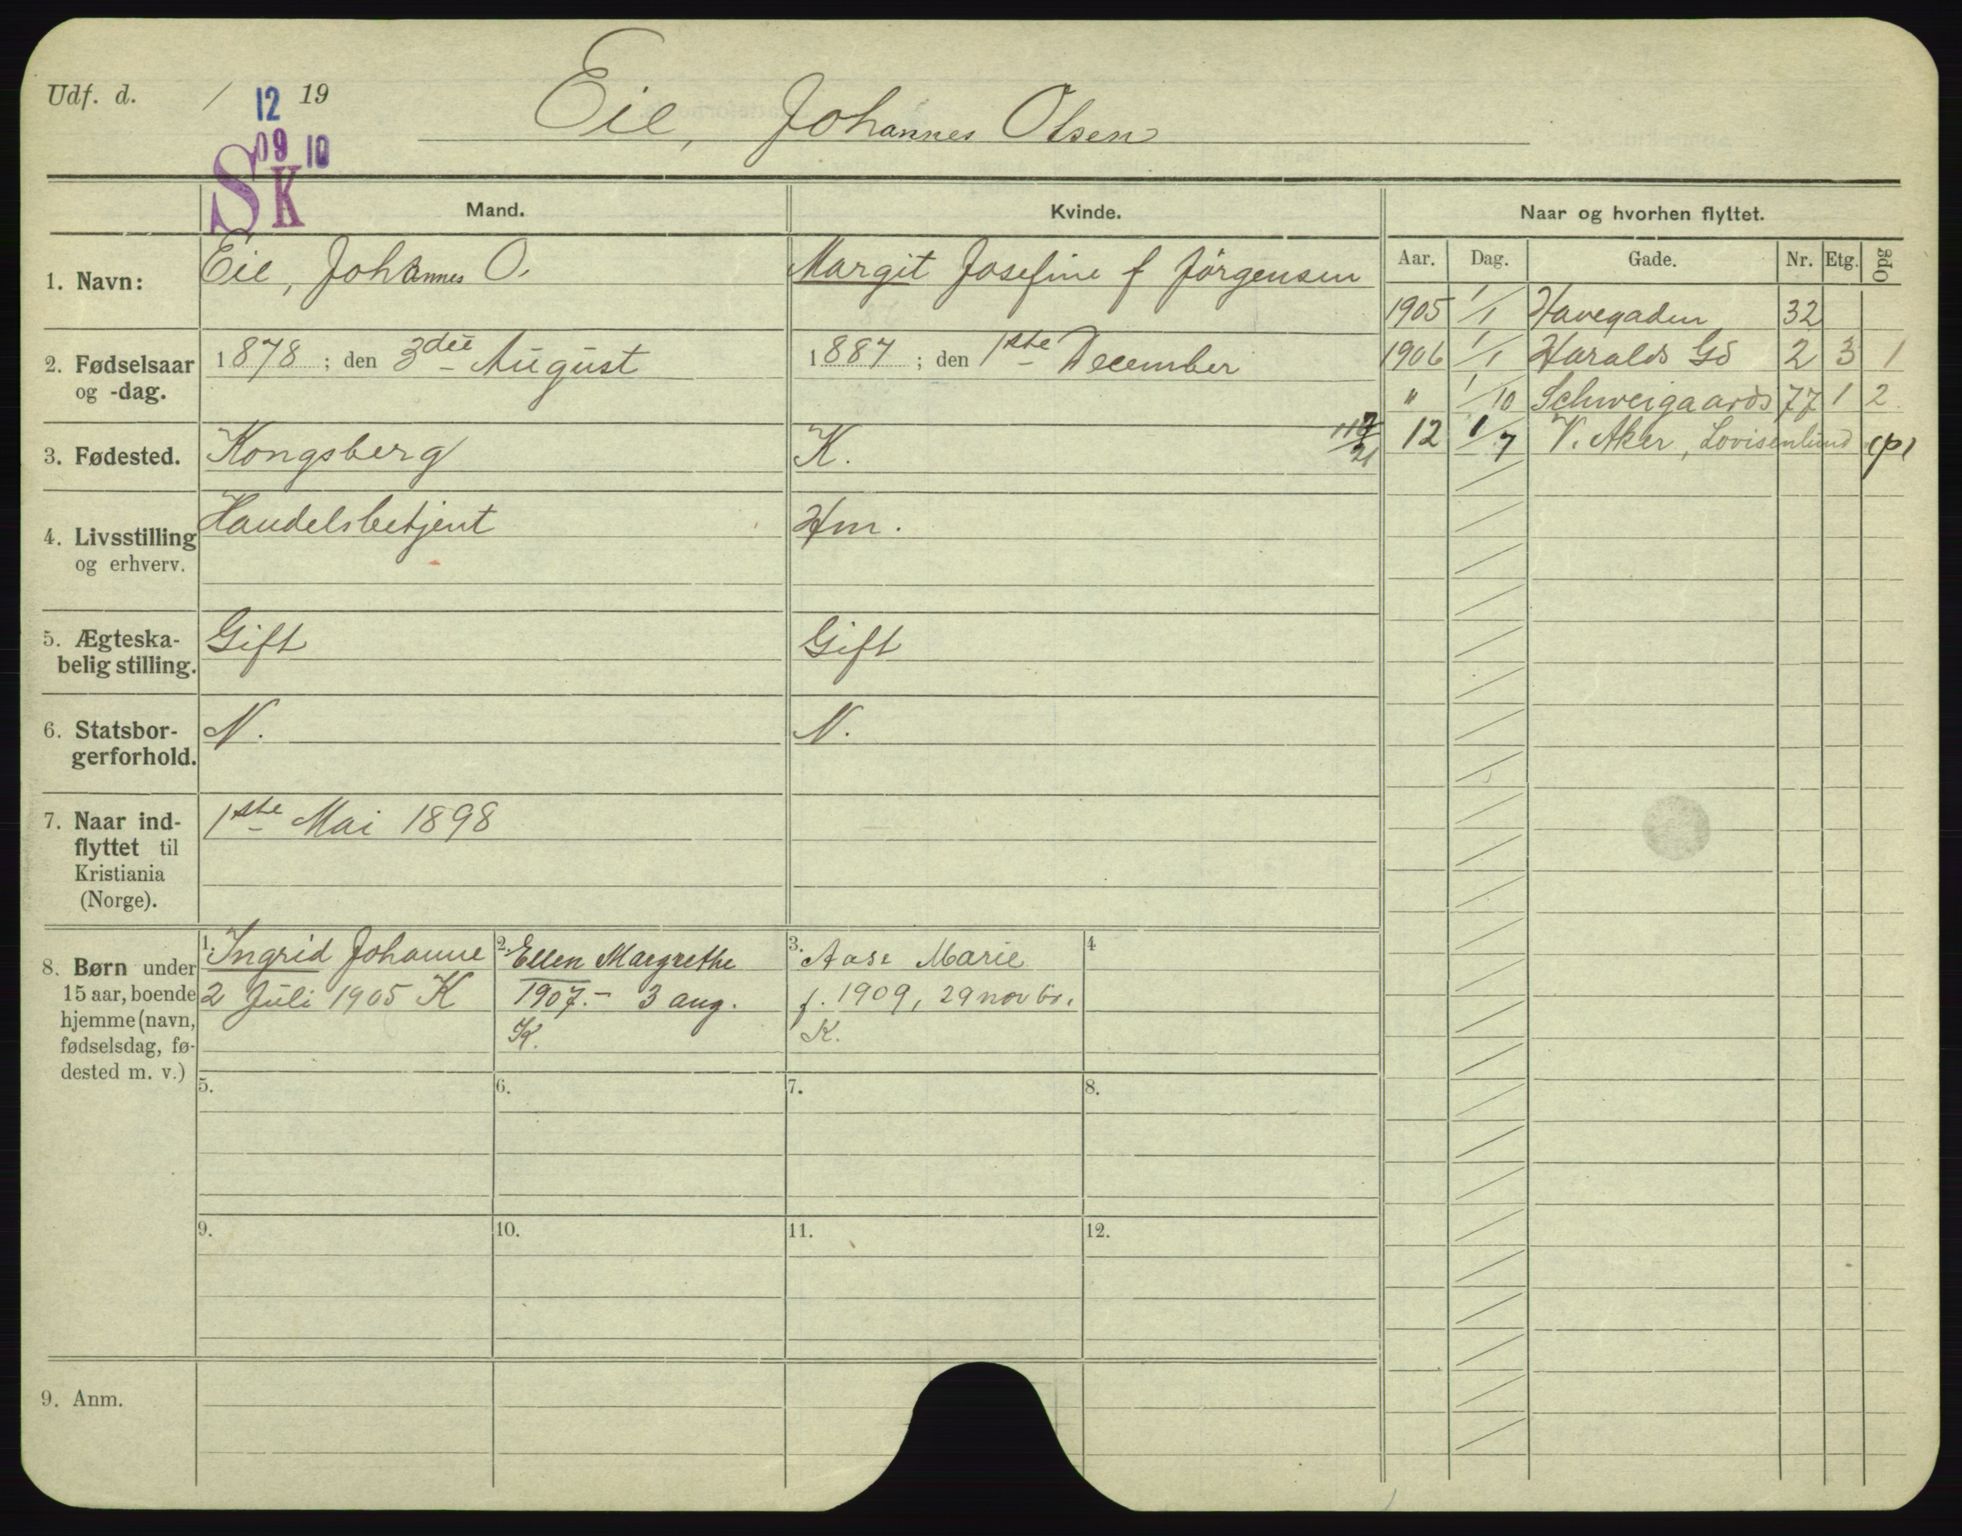 Udf. d. / 19
12
09 10
SK
Eie, Johannes Olsen
Mand.
Kvinde.
Naar og hvorhen flyttet.
1. Navn:
Eie, Johannes O.
Margit Josefine f Jörgensen
Aar. Dag. Gade. Nr. Etg. Opg
1905 1/1 Havegaden 32
2. Fødselsaar
og -dag.
1878 ; den 3die August
1887 ; den 1ste December
1906 1/1 Haralds Gd 2 3 1
" 1/10 Schweigaards 77 1 2
12 1/7 V. Aker, Lovisenlund (p)
3. Fødested.
Kongsberg
K.
4. Livsstilling
og erhverv.
Handelsbetjent
Hm.
5. Ægteska-
belig stilling.
Gift
Gift
6. Statsbor-
gerforhold.
N.
N.
7. Naar ind-
flyttet til
Kristiania
(Norge).
1ste Mai 1898
8. Børn under
15 aar, boende
hjemme (navn,
fødselsdag, fø-
dested m. v.)
1. Ingrid Johanne
2 Juli 1905 K
2. Ellen Margrethe
1907. - 3 aug.
K.
3. Aase Marie
f. 1909, 29 novbr.
K.
4
5.
6.
7.
8.
9.
10.
11.
12.
9. Anm.